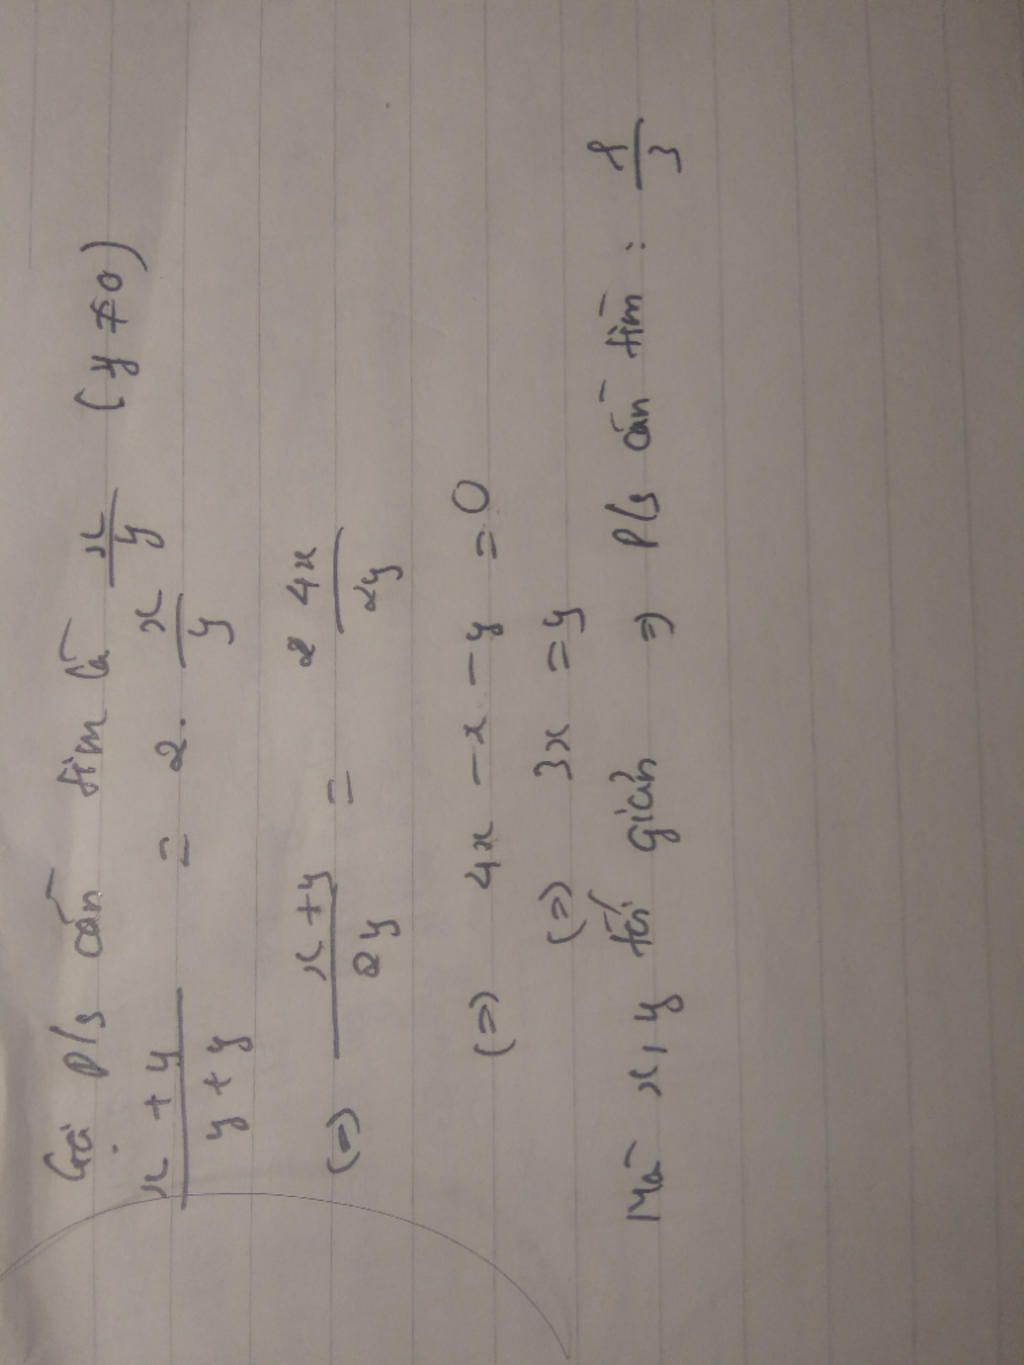 Gọi P/s cần tìm là x/y (y ≠ 0)
(x + y)/(y + y) = 2. x/y
(=) (x + y)/2y = 4x/2y
(=) 4x - x - y = 0
(=) 3x = y
Mà x, y tối giản => P/s cần tìm : 1/3